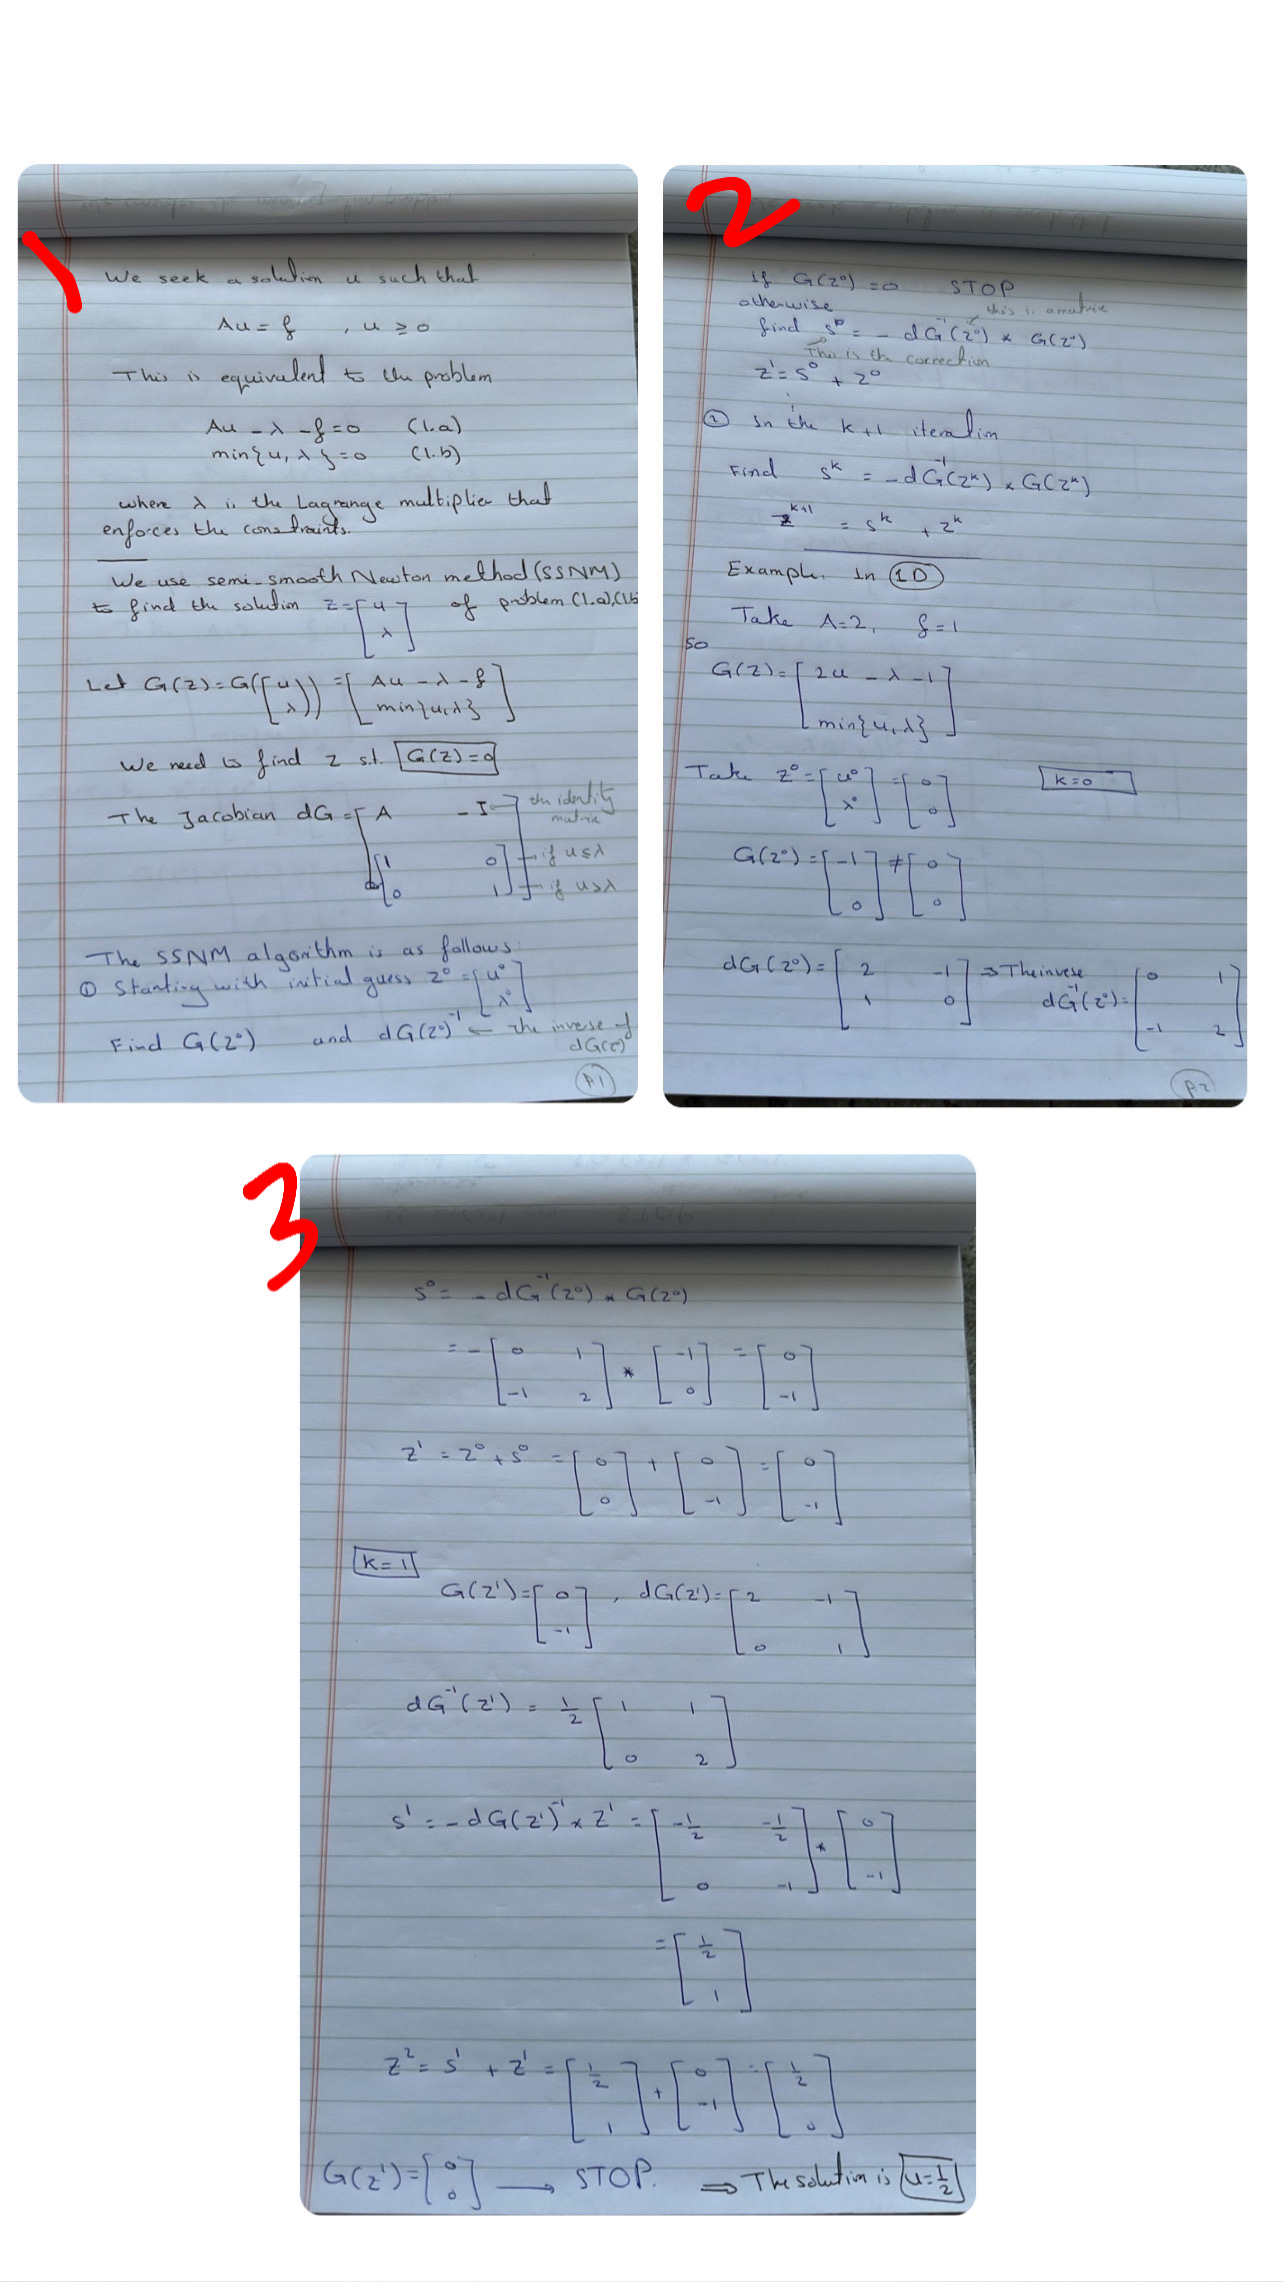 1
We seek a solution u such that
Au = f , u ≥ 0
This is equivalent to the problem
Au - λ - f = 0 (1.a)
min{u, λ} = 0 (1.b)
where λ is the Lagrange multiplier that
enforces the constraints.
We use semi-smooth Newton method (SSNM)
to find the solution z = [u of problem (1.a),(1.b
λ]
Let G(z) = G([u = [Au - λ - f
λ]) min{u,λ}]
We need to find z s.t. G(z) = 0
The Jacobian dG = [A -I] ← the identity
matrix
[1 0] → if u ≤ λ
[0 1] → if u > λ
The SSNM algorithm is as follows:
① Starting with initial guess z⁰ = [u⁰
λ⁰]
Find G(z⁰) and dG(z⁰)⁻¹ ← the inverse of
dG(z⁰)
P.1
2
if G(z⁰) = 0 STOP
otherwise this is a matrix
find s⁰ = - dG⁻¹(z⁰) * G(z⁰)
This is the correction
z¹ = s⁰ + z⁰
② In the k+1 iteration
Find s^k = - dG⁻¹(z^k) * G(z^k)
z^k+1 = s^k + z^k
Example. In 1D
Take A=2, f=1
so
G(z) = [2u - λ - 1
min{u,λ}]
Take z⁰ = [u⁰ = [0 k=0
λ⁰] 0]
G(z⁰) = [-1 ≠ [0
0] 0]
dG(z⁰) = [2 -1 ⇒ The inverse [0 1
1 0] dG⁻¹(z⁰) = -1 2]
P.2
3
s⁰ = - dG⁻¹(z⁰) * G(z⁰)
= - [0 1 * [-1 = [0
-1 2] 0] -1]
z¹ = z⁰ + s⁰ = [0 + [0 = [0
0] -1] -1]
k=1
G(z¹) = [0 , dG(z¹) = [2 -1
-1] 0 1]
dG⁻¹(z¹) = 1/2 [1 1
0 2]
s¹ = - dG(z¹)⁻¹ * z¹ = [-1/2 -1/2 * [0
0 -1] -1]
= [1/2
1]
z² = s¹ + z¹ = [1/2 + [0 = [1/2
1] -1] 0]
G(z¹) = [0 → STOP. ⇒ The solution is u = 1/2
0]